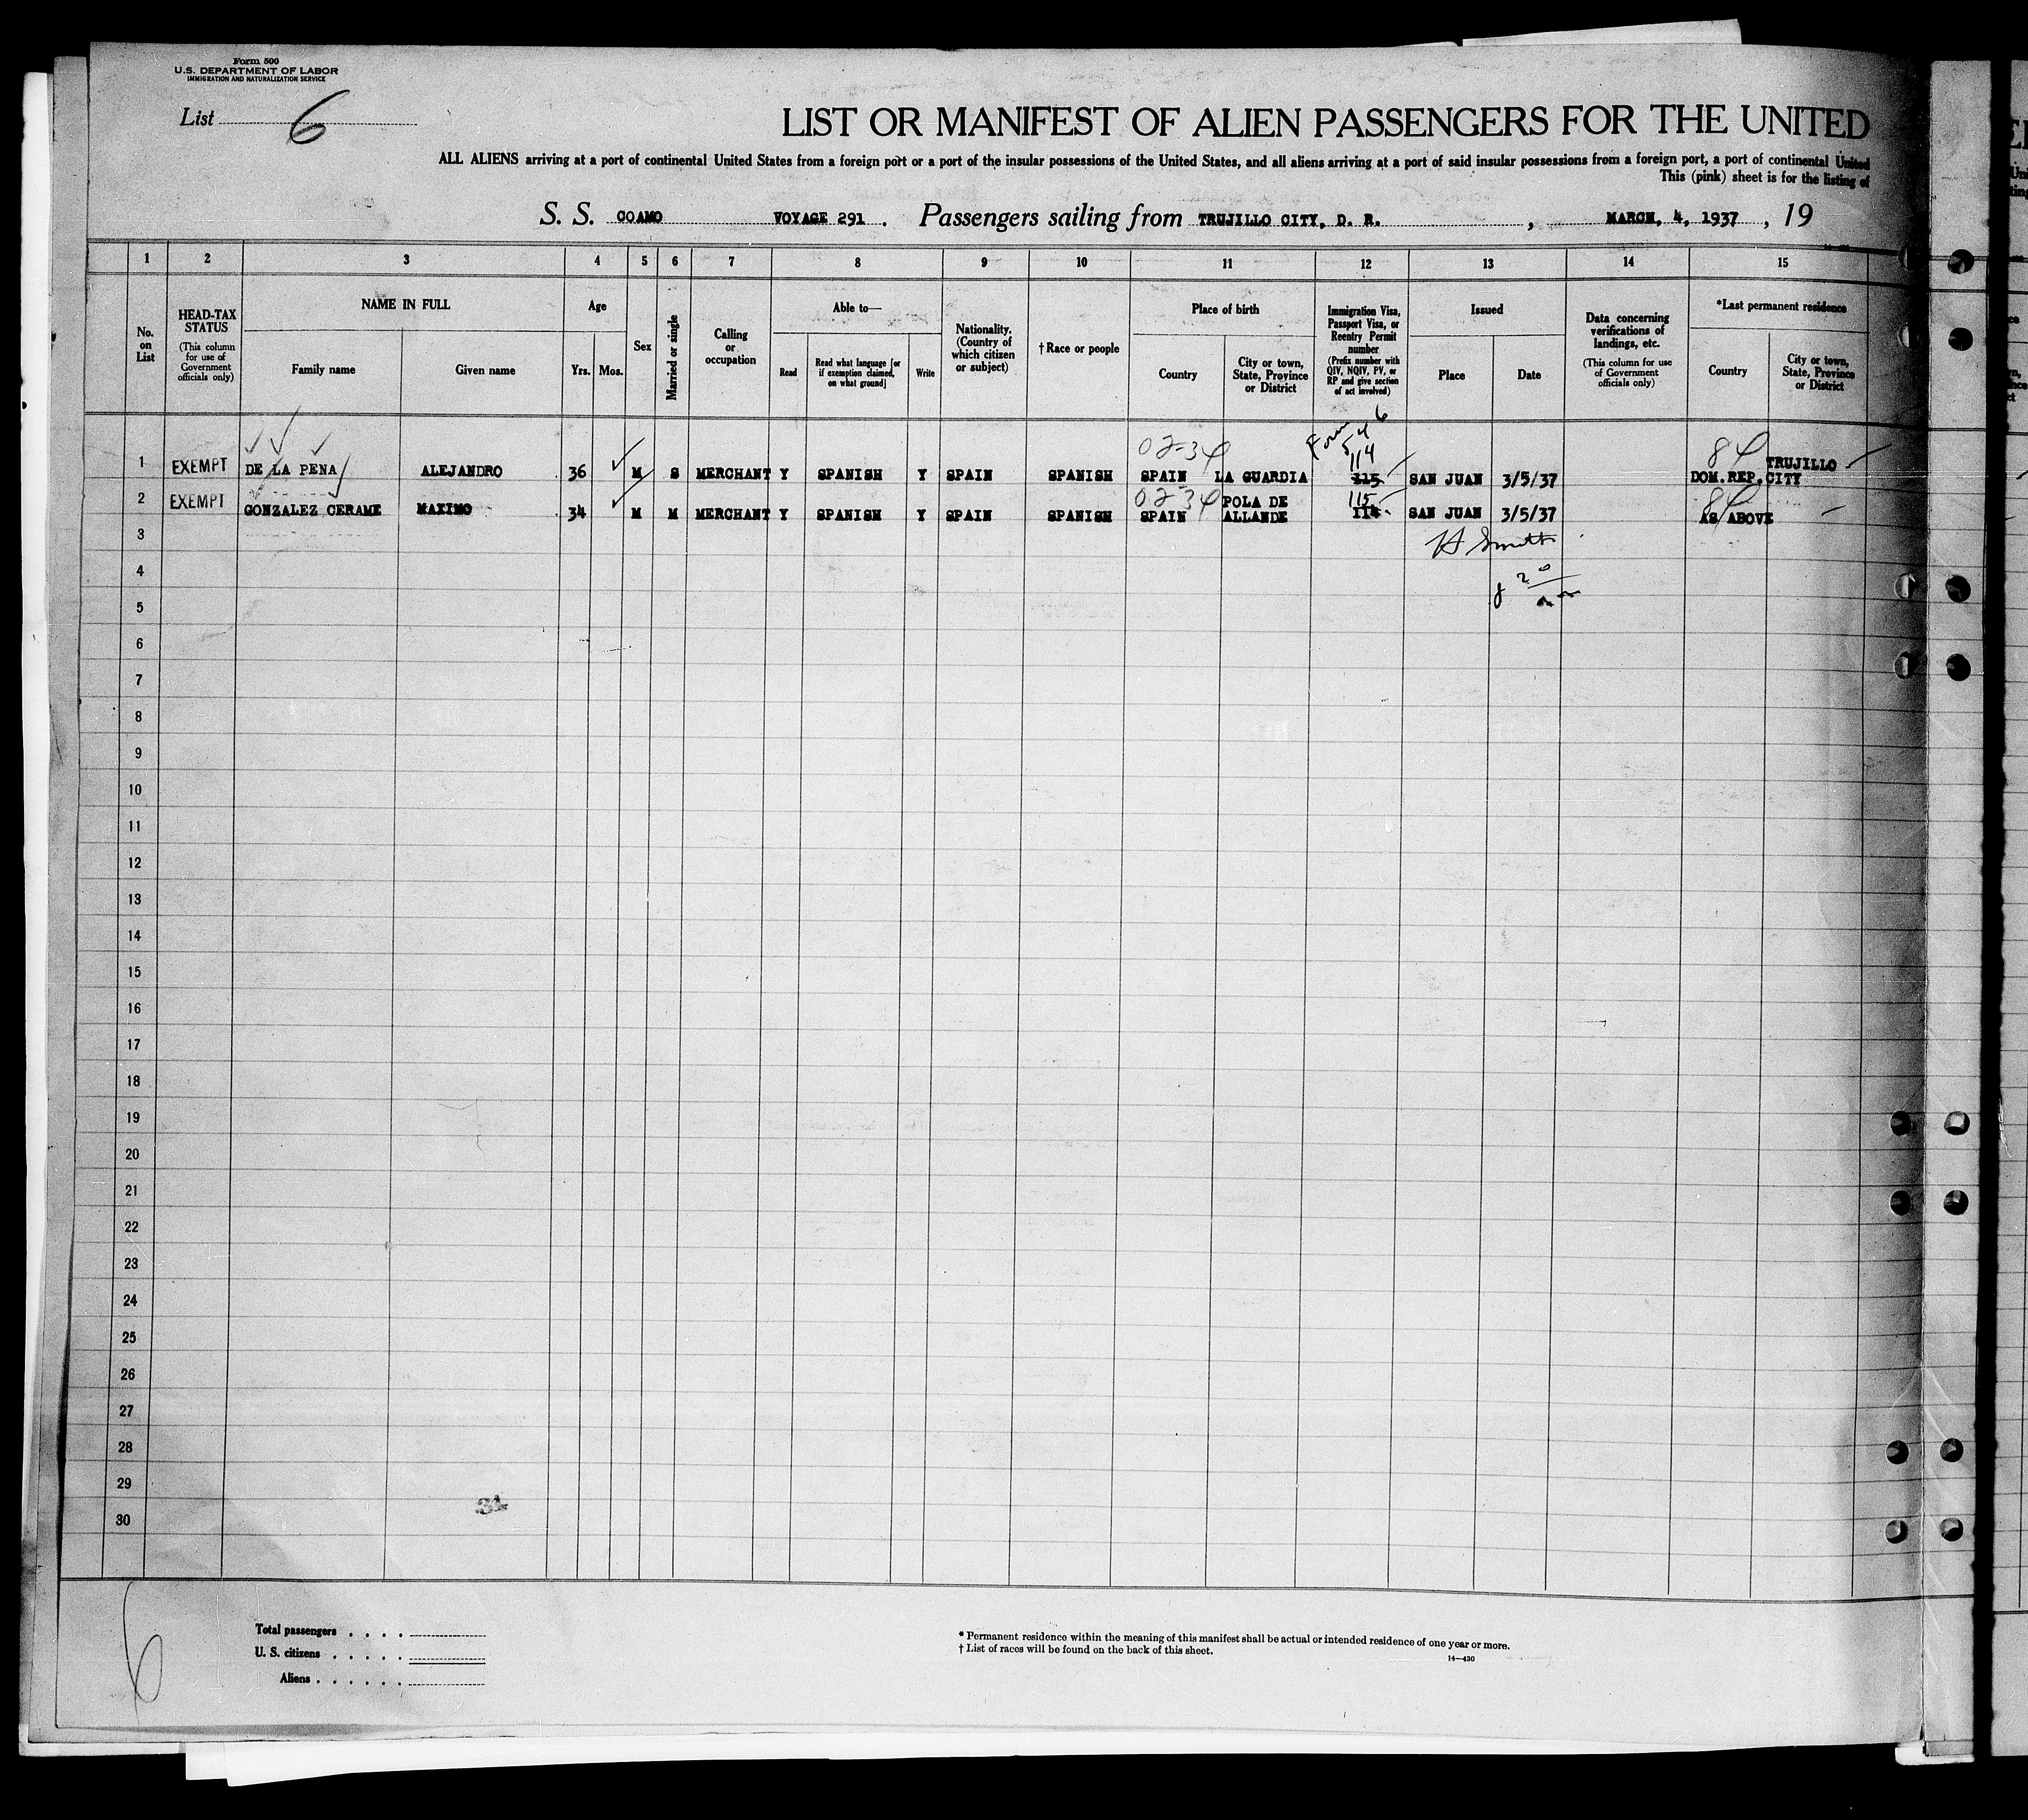 Form 500
U.S. DEPARTMENT OF LABOR
IMMIGRATION AND NATURALIZATION SERVICE
List 6
LIST OR MANIFEST OF ALIEN PASSENGERS FOR THE UNITED
ALL ALIENS arriving at a port of continental United States from a foreign port or a port of the insular possessions of the United States, and all aliens arriving at a port of said insular possessions from a foreign port, a port of continental United
This (pink) sheet is for the listing of
S. S. COAMO VOYAGE 291 . Passengers sailing from TRUJILLO CITY, D. R. , MARCH, 4, 1937 , 19
1 2 3 4 5 6 7 8 9 10 11 12 13 14 15
No. on List
HEAD-TAX STATUS
(This column for use of Government officials only)
NAME IN FULL
Family name
Given name
Age
Yrs. Mos.
Sex
Married or single
Calling or occupation
Able to—
Read
Read what language [or if exemption claimed, on what ground]
Write
Nationality. (Country of which citizen or subject)
† Race or people
Place of birth
Country
City or town, State, Province or District
Immigration Visa, Passport Visa, or Reentry Permit number
(Prefix number with QIV, NQIV, PV, or RP and give section of act involved)
Issued
Place
Date
Data concerning verifications of landings, etc.
(This column for use of Government officials only)
*Last permanent residence
Country
City or town, State, Province or District
02-34 Form 546 114 84
1 EXEMPT DE LA PENA ALEJANDRO 36 M S MERCHANT Y SPANISH Y SPAIN SPANISH SPAIN LA GUARDIA 115 SAN JUAN 3/5/37 DOM.REP. TRUJILLO CITY
02-34 115 84
2 EXEMPT GONZALEZ CERAME MAXIMO 34 M M MERCHANT Y SPANISH Y SPAIN SPANISH SPAIN POLA DE ALLANDE 114 SAN JUAN 3/5/37 AS ABOVE
3
4
5
6
7
8
9
10
11
12
13
14
15
16
17
18
19
20
21
22
23
24
25
26
27
28
29
30
6
Total passengers . . . .
U. S. citizens . . . . .
Aliens . . . . . .
* Permanent residence within the meaning of this manifest shall be actual or intended residence of one year or more.
† List of races will be found on the back of this sheet.
14—430